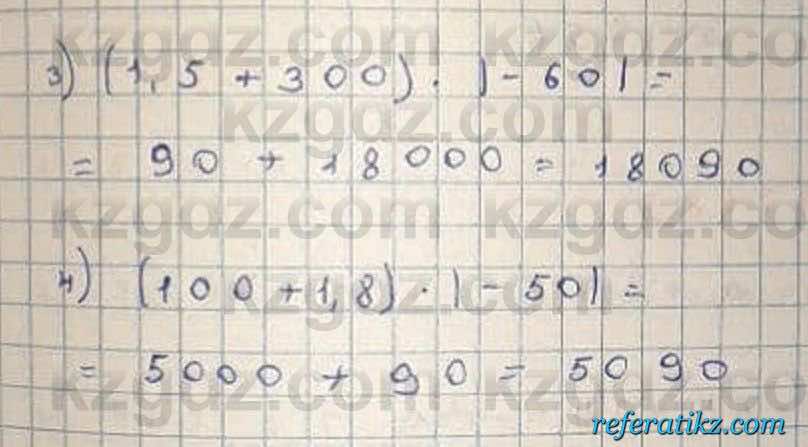 3) (1,5 + 300) · |-60| =
= 90 + 18000 = 18090
4) (100 + 1,8) · |-50| =
= 5000 + 90 = 5090
kzgdz.com kzgdz.com
kzgdz.com
kzgdz.com kzgdz.com
kzgdz.com
kzgdz.com kzgdz.com
referatikz.com